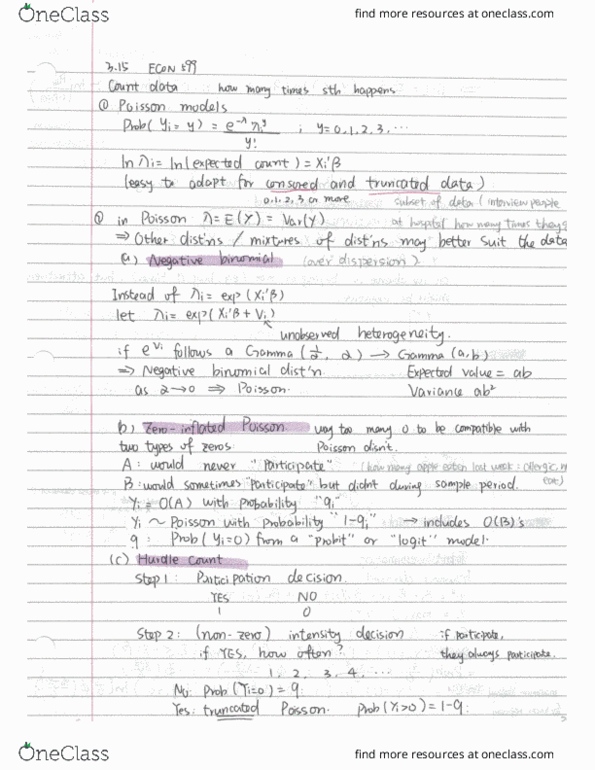 OneClass
find more resources at oneclass.com
3.15 ECON 399
Count data how many times sth happens
① Poisson models
Prob( Yi = y ) = e^-λ λi^y / y! ; y = 0, 1, 2, 3, ...
ln λi = ln (expected count) = Xi'β
(easy to adapt for consored and truncated data)
0.1.2,3 or more subset of data (interview people
② in Poisson λ = E(Y) = Var(Y) at hospital how many times they
⇒ Other dist'ns / mixtures of dist'ns may better suit the data
(a) Negative binomial (over dispersion)
Instead of λi = exp( Xi'β )
let λi = exp( Xi'β + Vi )
unobserved heterogeneity.
if e^Vi follows a Gamma ( 1/2, 2 ) → Gamma (a, b)
⇒ Negative binomial dist'n. Expected value = ab
as 2 → 0 ⇒ Poisson. Variance ab²
b) Zero-inflated Poisson way too many 0 to be compatible with
two types of zeros. Poisson disn't.
A: would never "participate" (how many apple eaten last week: allergic,
B: would sometimes "participate" but didnt during sample period. eat)
Yi = 0(A) with probability "qi"
Yi ~ Poisson with probability "1-qi" → includes 0(B)'s
q: Prob ( Yi=0 ) from a "probit" or "logit" model.
(c) Hurdle Count
Step 1: Participation decision.
YES NO
1 0
Step 2: (non-zero) intensity decision if participate,
if YES, how often? they always participate.
1, 2, 3, 4, ...
No: Prob (Yi=0) = q
Yes: truncated Poisson. Prob (Yi>0) = 1-q.
OneClass
find more resources at oneclass.com